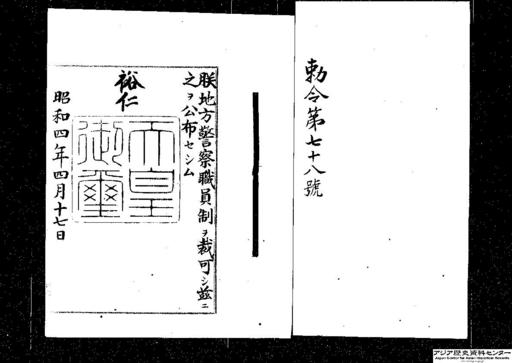 勅令第七十八號
朕地方警察職員制ヲ裁可シ茲ニ
之ヲ公布セシム
裕仁
天皇
御璽
昭和四年四月十七日
アジア歴史資料センター
Japan Center for Asian Historical Records